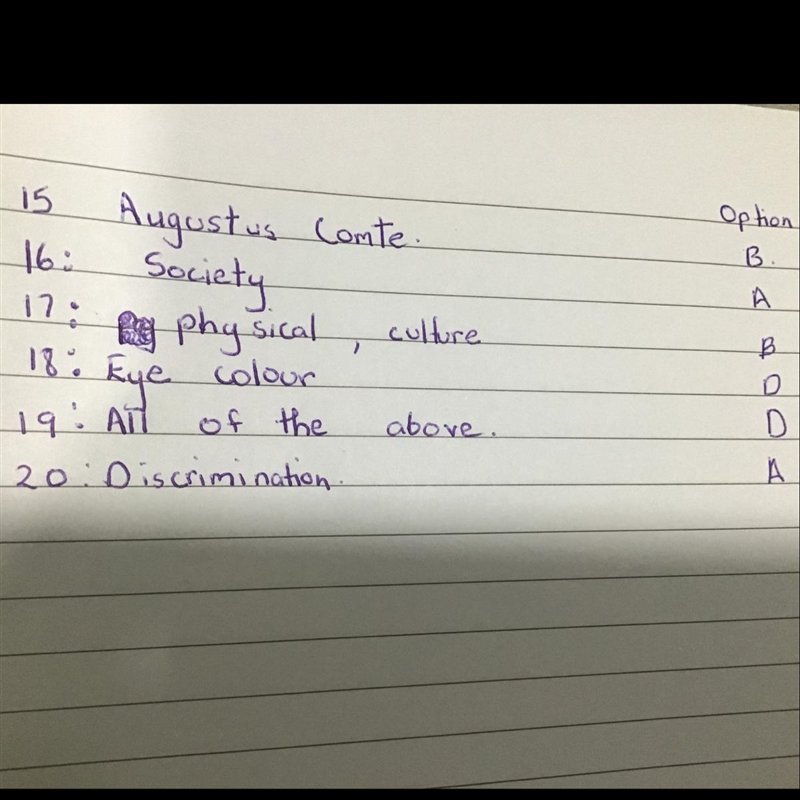 15 Augustus Comte. Option B.
16: Society A
17: physical, culture B
18: Eye colour D
19: All of the above. D
20: Discrimination. A